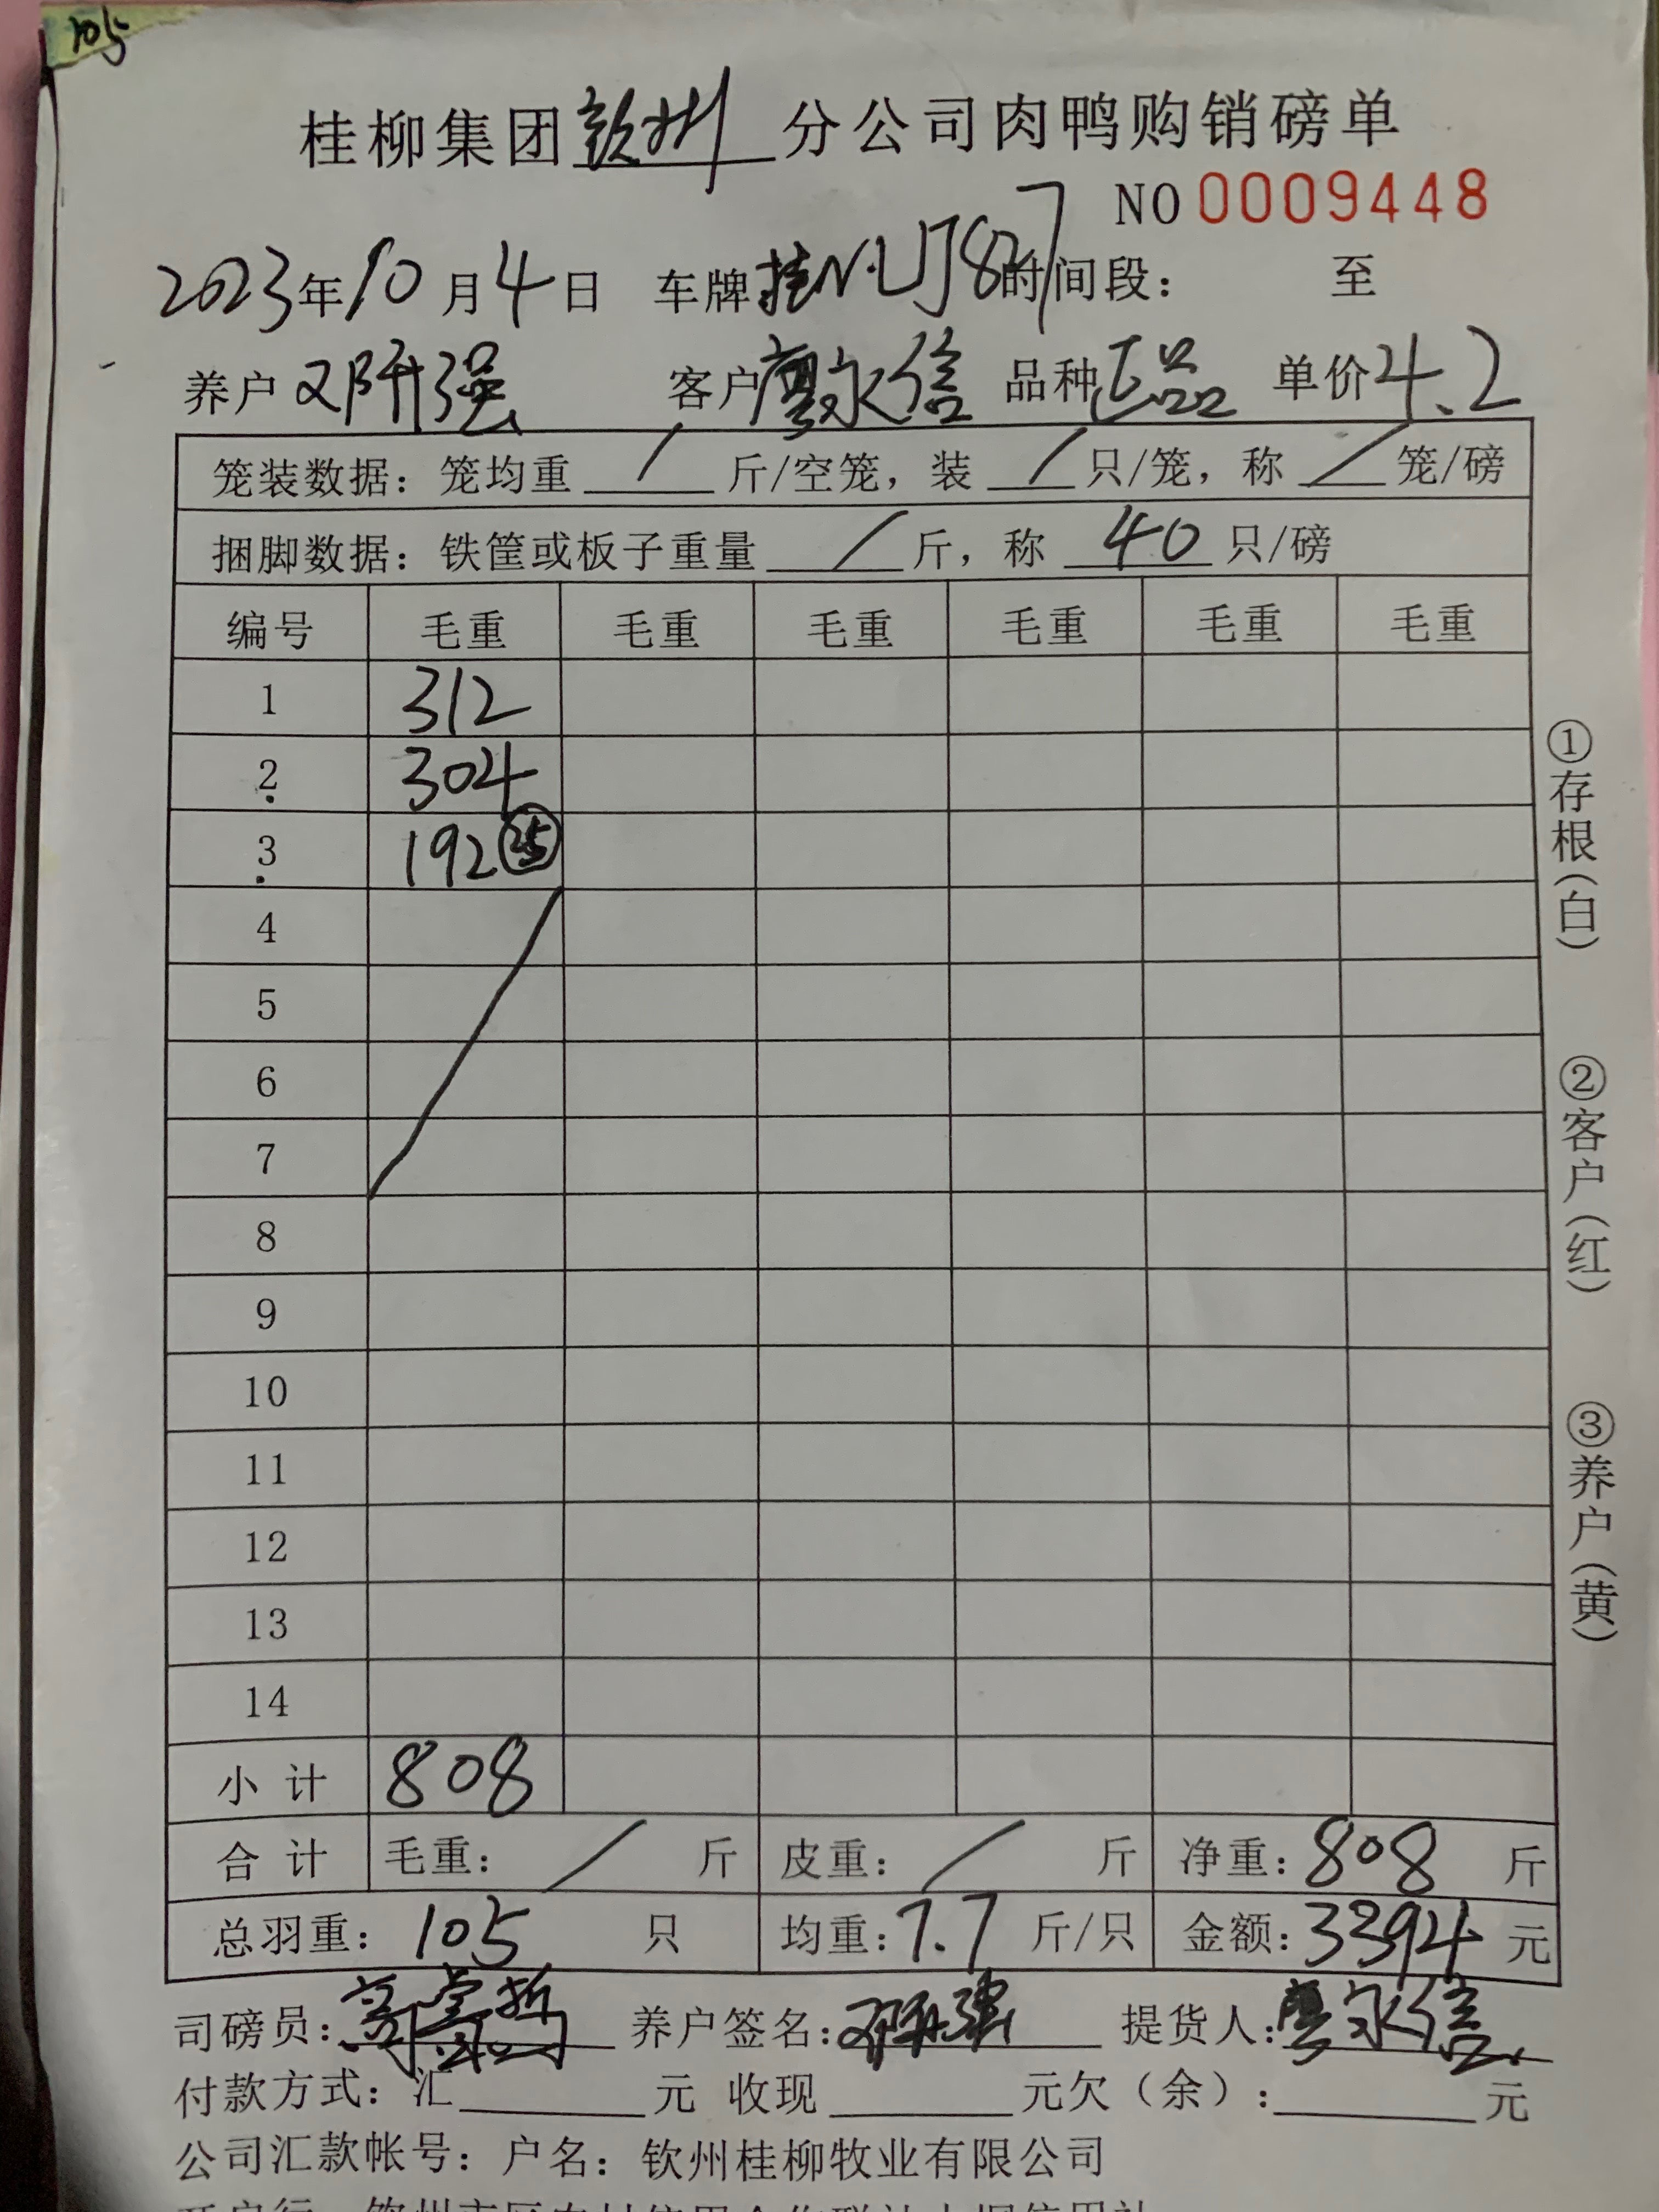 105
桂柳集团钦州分公司肉鸭购销磅单
NO 0009448
2023年10月4日 车牌桂N·UJ827 时间段: 至
养户 邓升强 客户廖永信 品种正品 单价4.2
笼装数据: 笼均重 / 斤/空笼, 装 / 只/笼, 称 / 笼/磅
捆脚数据: 铁筐或板子重量 / 斤, 称 40 只/磅
编号 毛重 毛重 毛重 毛重 毛重 毛重
1 312
2 304
3 192 25
4
5
6
7
8
9
10
11
12
13
14
小计 808
合计 毛重: / 斤 皮重: / 斤 净重: 808 斤
总羽重: 105 只 均重: 7.7 斤/只 金额: 3394 元
司磅员: 养户签名: 邓升强 提货人: 廖永信
付款方式: 汇 元 收现 元欠(余): 元
公司汇款帐号: 户名: 钦州桂柳牧业有限公司
①存根(白)
②客户(红)
③养户(黄)